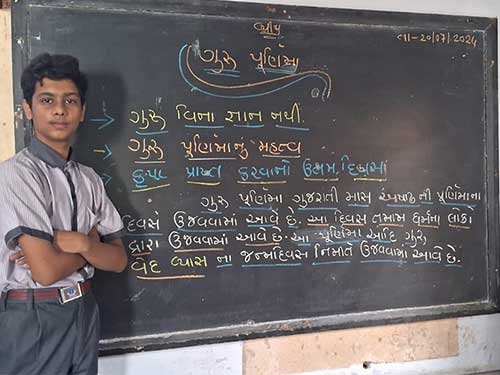 તા-20/07/2024
ગુરુ પૂર્ણિમા
ગુરુ વિના જ્ઞાન નથી.
ગુરુ પૂર્ણિમાનુ મહત્વ
કૃપા પ્રાપ્ત કરવાનો ઉત્તમ દિવસ
ગુરુ પૂર્ણિમા ગુજરાતી માસ અષાઢ ની પૂર્ણિમાના
દિવસે ઉજવવામાં આવે છે. આ દિવસ તમામ ધર્મના લોકો
દ્વારા ઉજવવામાં આવે છે. આ પૂર્ણિમા આદિ ગુરુ
વેદ વ્યાસ ના જન્મદિવસ નિમિતે ઉજવવામાં આવે છે.